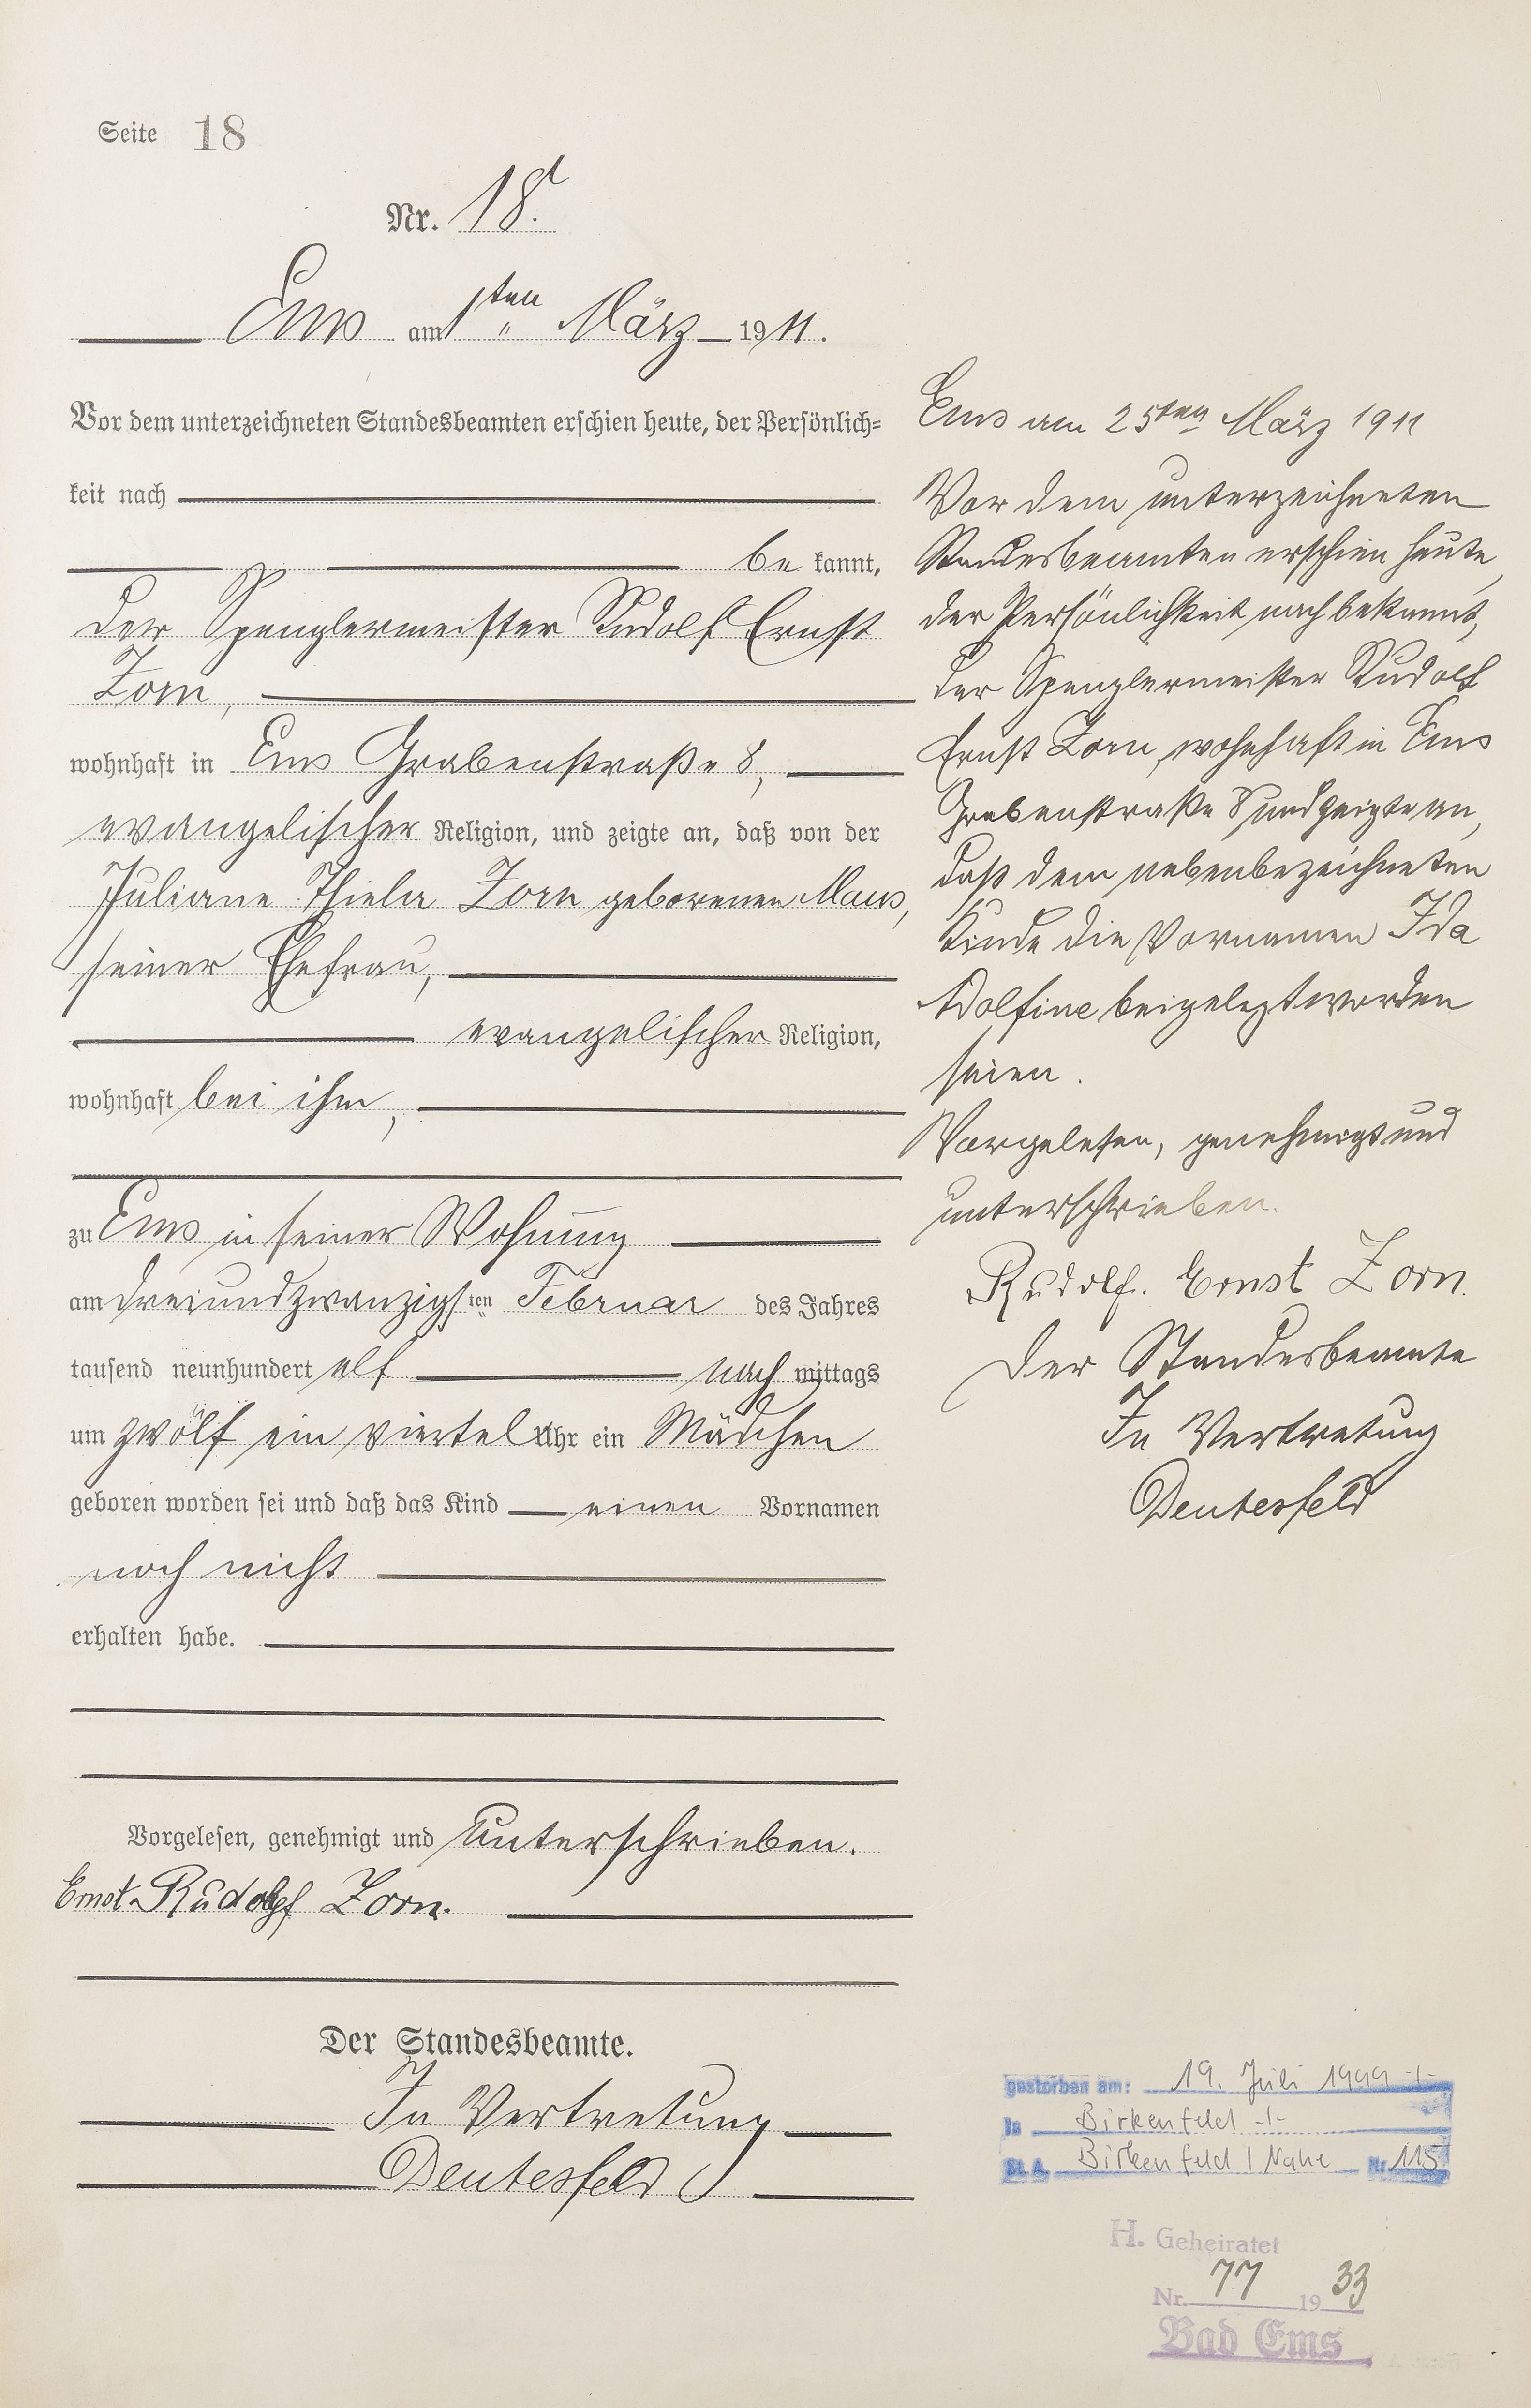 Seite 18
Nr. 18.
Ems am 1ten März 1911.
Vor dem unterzeichneten Standesbeamten erschien heute, der Persönlich=
keit nach
be kannt,
der Spenglermeister Rudolf Ernst
Zorn,
wohnhaft in Ems Grabenstraße 8,
evangelischer Religion, und zeigte an, daß von der
Juliane Thiela Zorn geborenen Maus,
seiner Ehefrau,
evangelischer Religion,
wohnhaft bei ihm,
zu Ems in seiner Wohnung
am dreiundzwanzigsten Februar des Jahres
tausend neunhundert elf nach mittags
um zwölf ein viertel Uhr ein Mädchen
geboren worden sei und daß das Kind einen Vornamen
noch nicht
erhalten habe.
Vorgelesen, genehmigt und unterschrieben.
Ernst Rudolf Zorn.
Der Standesbeamte.
In Vertretung
Deutesfeld
Ems am 25ten März 1911
Vor dem unterzeichneten
Standesbeamten erschien heute,
der Persönlichkeit nach bekannt,
der Spenglermeister Rudolf
Ernst Zorn, wohnhaft in Ems
Grabenstraße 8 und zeigte an,
daß dem nebenbezeichneten
Kinde die Vornamen Ida
Adolfine beigelegt worden
seien.
Vorgelesen, genehmigt und
unterschrieben.
Rudolf. Ernst Zorn.
Der Standesbeamte
In Vertretung
Deutesfeld
gestorben am: 19. Juli 1999 -/-
in Birkenfeld -/-
St. A. Birkenfeld / Nahe Nr. 115
H. Geheiratet
Nr. 77 1933
Bad Ems